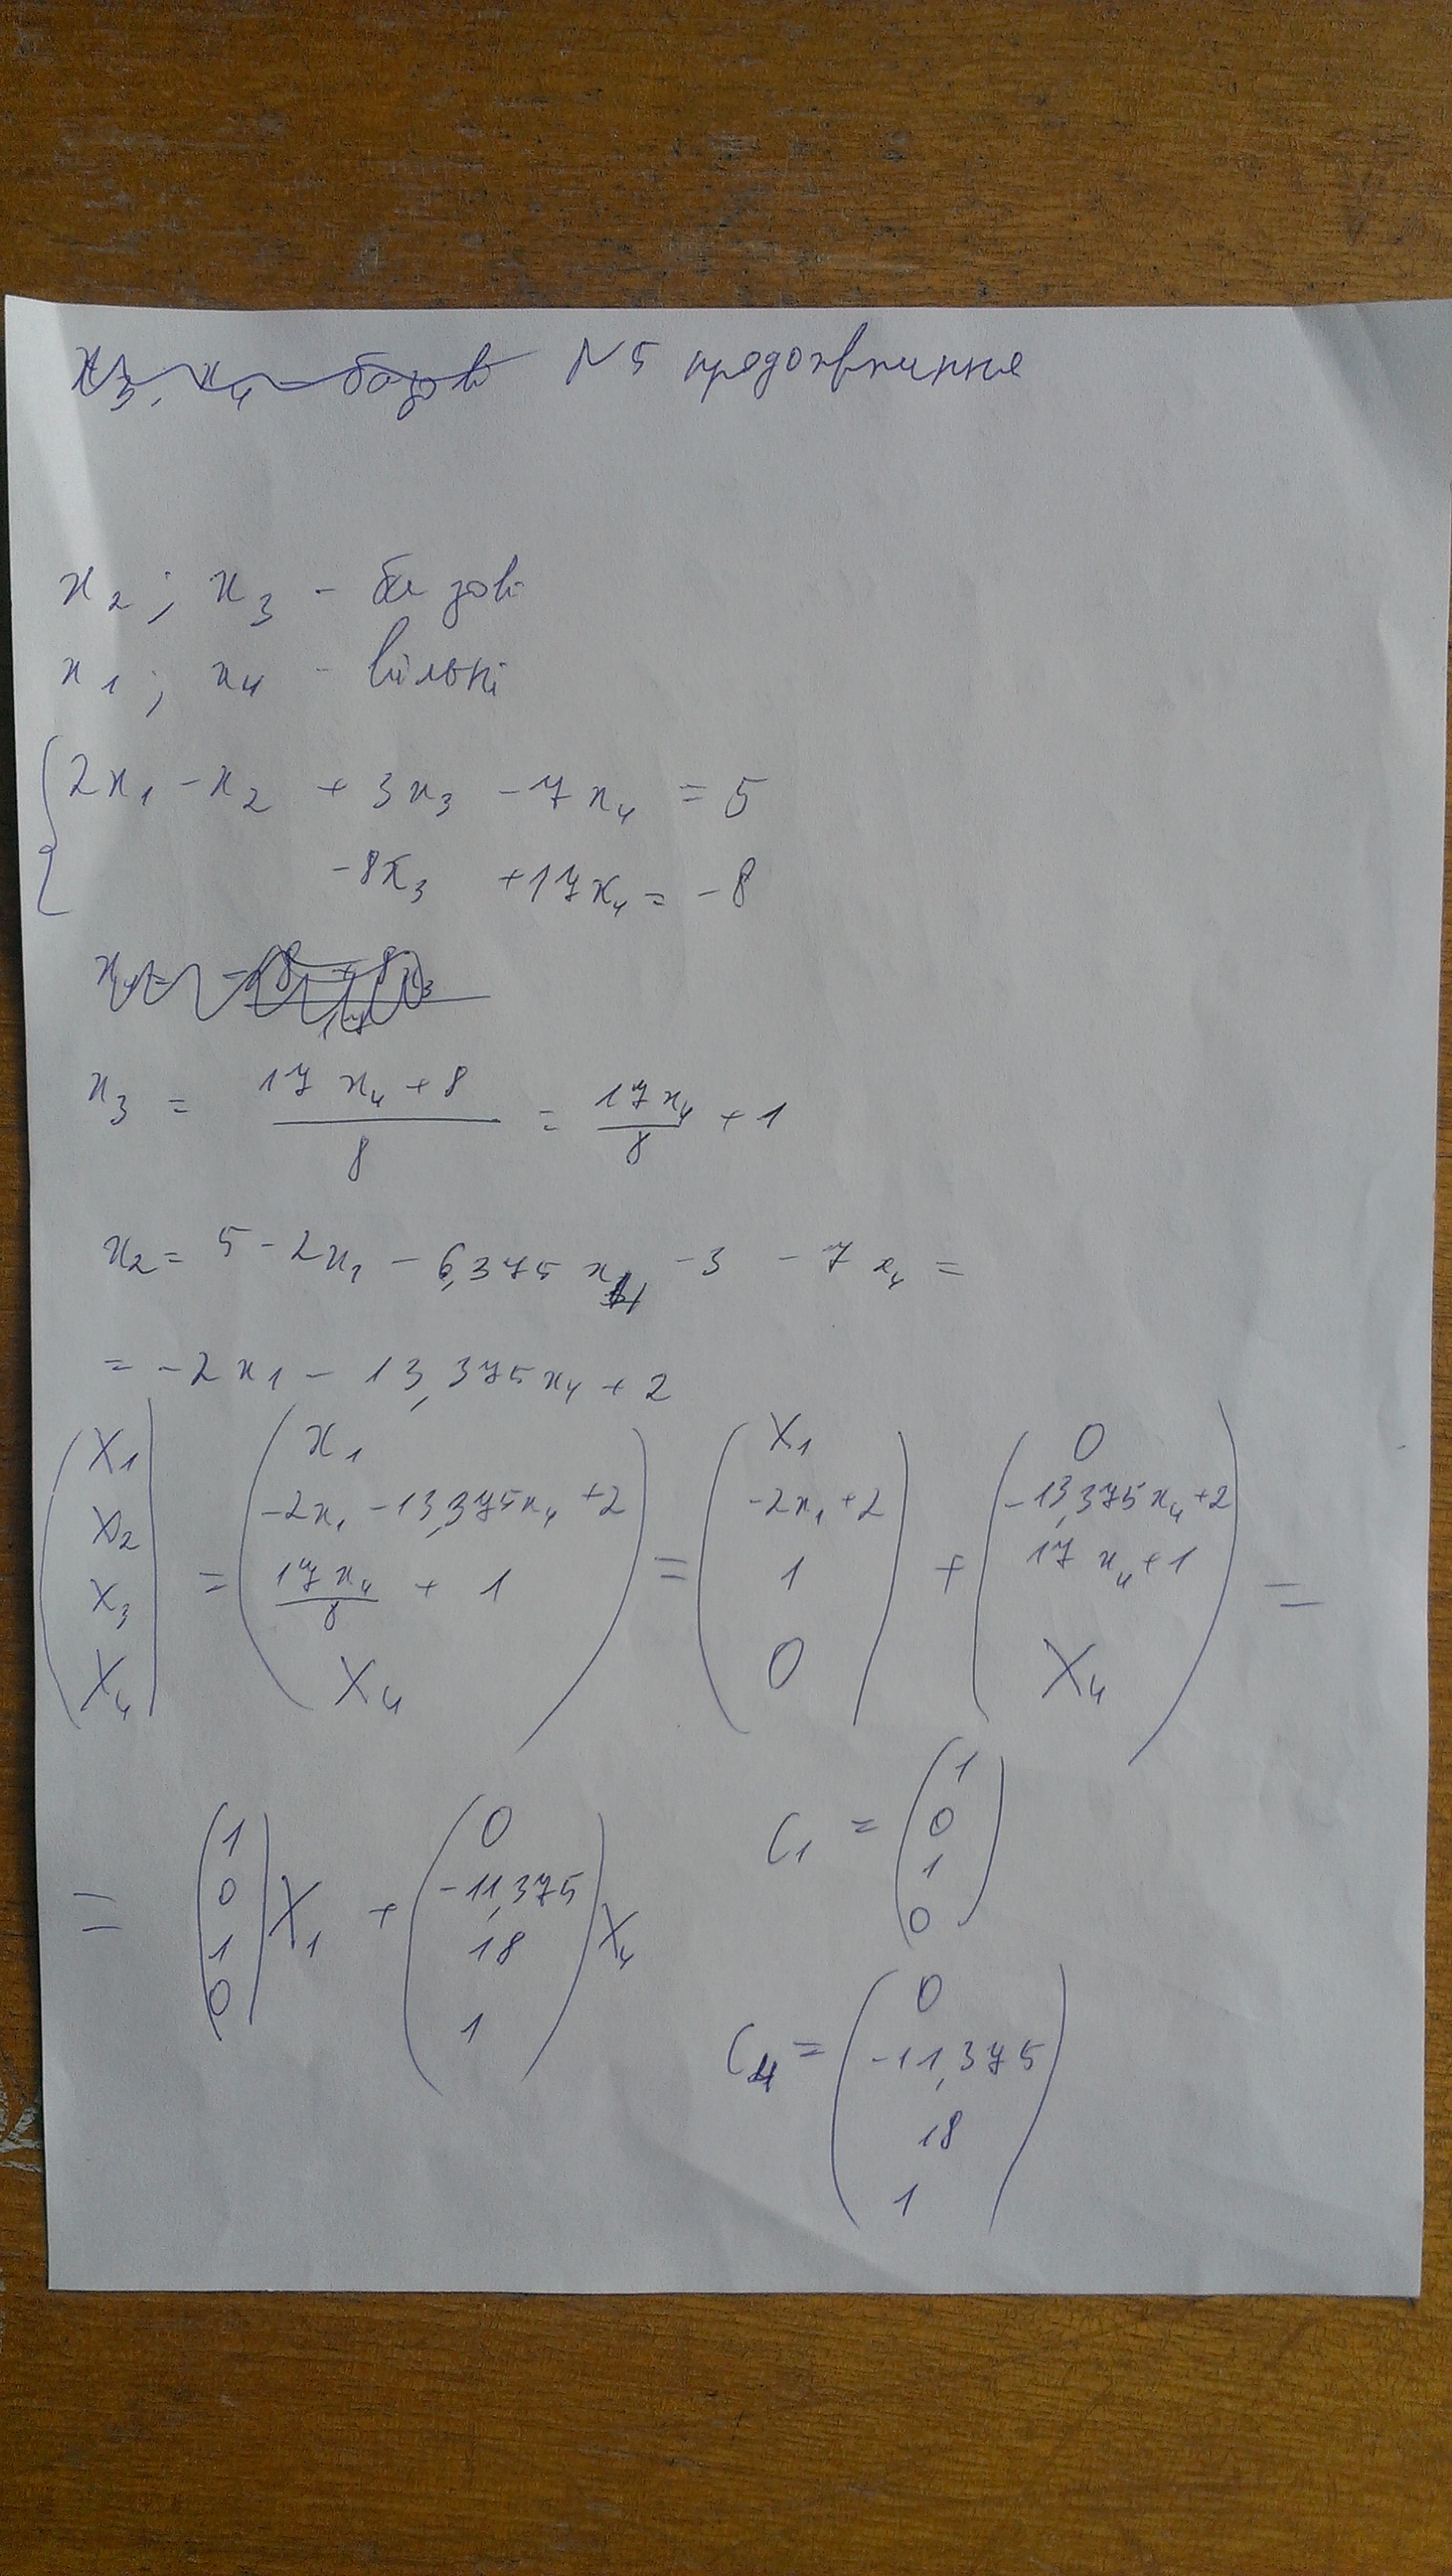 N5 продовження
x2; x3 - базові
x1; x4 - вільні
{ 2x1 - x2 + 3x3 - 7x4 = 5
-8x3 + 17x4 = -8
x3 = (17x4 + 8)/8 = 17x4/8 + 1
x2 = 5 - 2x1 - 6,375x4 - 3 - 7x4 =
= -2x1 - 13,375x4 + 2
(X1 X2 X3 X4) = (x1 -2x1 - 13,375x4 + 2 17x4/8 + 1 X4) = (X1 -2x1 + 2 1 0) + (0 -13,375x4 + 2 17x4 + 1 X4) =
= (1 0 1 0) X1 + (0 -11,375 18 1) X4
C1 = (1 0 1 0)
C4 = (0 -11,375 18 1)